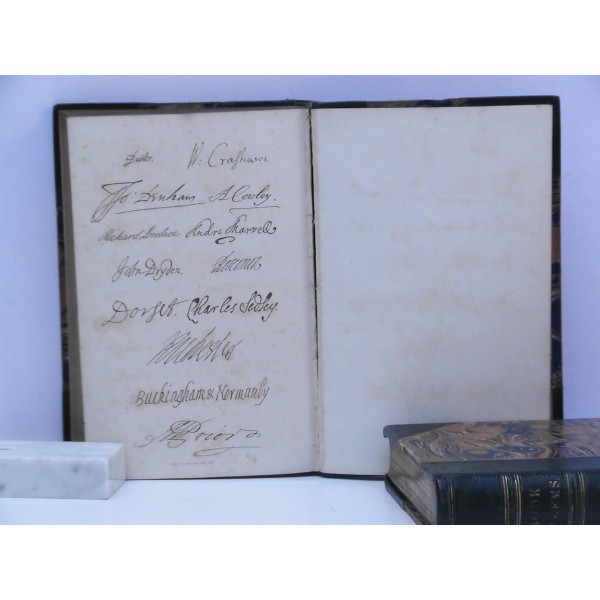 Butler. W: Crashawe
Jo: Denham A Cowley.
Richard Lovelace Andre Marvell
John Dryden
Dorset. Charles Sedley.
Rochester
Buckingham & Normanby
MPrior
BOOK
GEMS.